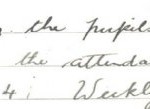 the pupils
the attenda
4; Weekl